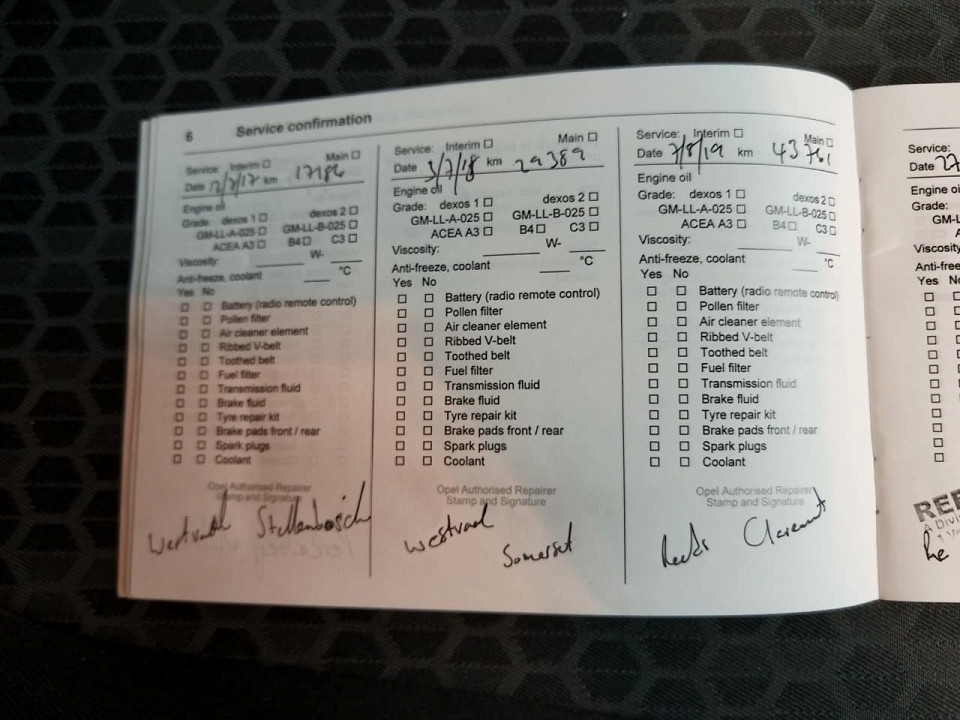 6 Service confirmation
Service: Interim ☐ Main ☐
Date 2/7/17 km 17186
Engine oil
Grade: dexos 1 ☐ dexos 2 ☐
GM-LL-A-025 ☐ GM-LL-B-025 ☐
ACEA A3 ☐ B4 ☐ C3 ☐
Viscosity: ______ W- ____
Anti-freeze, coolant ____ °C
Yes No
☐ ☐ Battery (radio remote control)
☐ ☐ Pollen filter
☐ ☐ Air cleaner element
☐ ☐ Ribbed V-belt
☐ ☐ Toothed belt
☐ ☐ Fuel filter
☐ ☐ Transmission fluid
☐ ☐ Brake fluid
☐ ☐ Tyre repair kit
☐ ☐ Brake pads front / rear
☐ ☐ Spark plugs
☐ ☐ Coolant
Opel Authorised Repairer
Stamp and Signature
Westvaal Stellenbosch
Service: Interim ☐ Main ☐
Date 3/7/18 km 29389
Engine oil
Grade: dexos 1 ☐ dexos 2 ☐
GM-LL-A-025 ☐ GM-LL-B-025 ☐
ACEA A3 ☐ B4 ☐ C3 ☐
Viscosity: ______ W- ____
Anti-freeze, coolant ____ °C
Yes No
☐ ☐ Battery (radio remote control)
☐ ☐ Pollen filter
☐ ☐ Air cleaner element
☐ ☐ Ribbed V-belt
☐ ☐ Toothed belt
☐ ☐ Fuel filter
☐ ☐ Transmission fluid
☐ ☐ Brake fluid
☐ ☐ Tyre repair kit
☐ ☐ Brake pads front / rear
☐ ☐ Spark plugs
☐ ☐ Coolant
Opel Authorised Repairer
Stamp and Signature
Westvaal
Somerset
Service: Interim ☐ Main ☐
Date 7/8/19 km 43761
Engine oil
Grade: dexos 1 ☐ dexos 2 ☐
GM-LL-A-025 ☐ GM-LL-B-025 ☐
ACEA A3 ☐ B4 ☐ C3 ☐
Viscosity: ______ W- ____
Anti-freeze, coolant ____ °C
Yes No
☐ ☐ Battery (radio remote control)
☐ ☐ Pollen filter
☐ ☐ Air cleaner element
☐ ☐ Ribbed V-belt
☐ ☐ Toothed belt
☐ ☐ Fuel filter
☐ ☐ Transmission fluid
☐ ☐ Brake fluid
☐ ☐ Tyre repair kit
☐ ☐ Brake pads front / rear
☐ ☐ Spark plugs
☐ ☐ Coolant
Opel Authorised Repairer
Stamp and Signature
Reeds Claremont
Service:
Date 27
Engine oi
Grade:
GM-L
A
Viscosity
Anti-free
Yes No
REE
A Divis